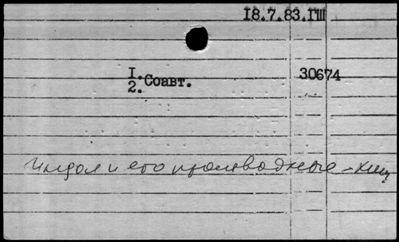 18.7.83.ГШ
1. Соавт.
2.
30674
Индол и его производные - хим